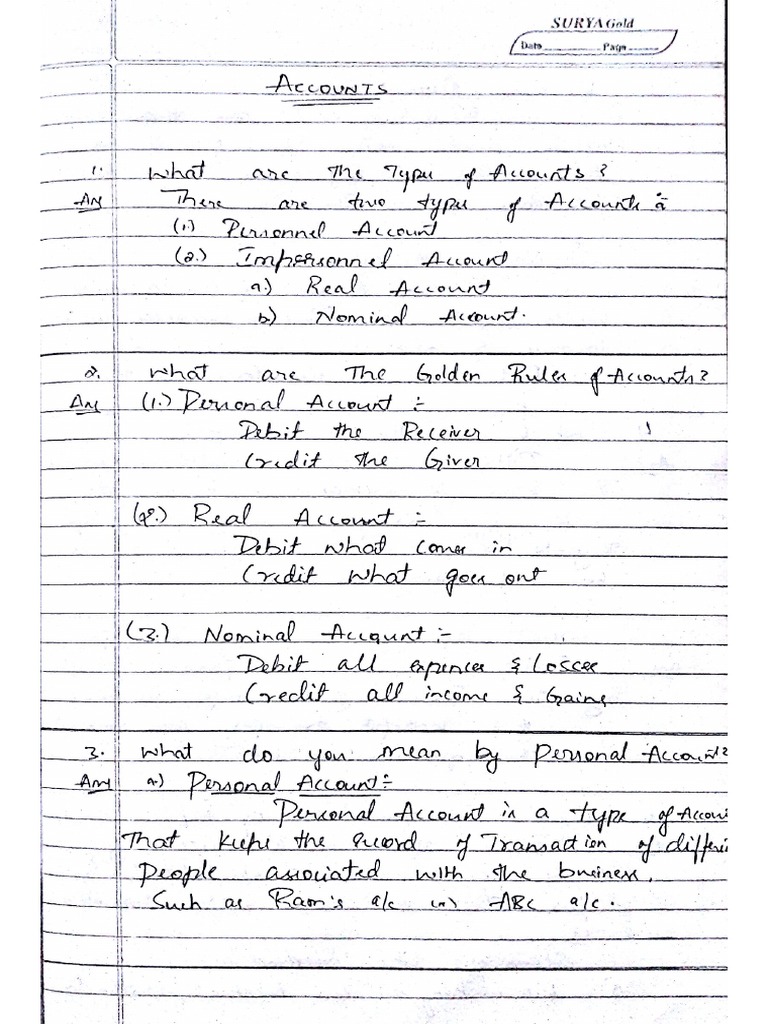 SURYA Gold
Date Page
ACCOUNTS
1. What are the Type of Accounts?
Ans There are two types of Accounts :-
(1.) Personnel Account
(2.) Impersonnel Account
a.) Real Account
b) Nominal Account.
2. What are the Golden Rules of Accounts?
Ans (1.) Personal Account :-
Debit the Receiver
Credit the Giver
(2.) Real Account :-
Debit what comes in
Credit what goes out
(3.) Nominal Account :-
Debit all expences & Losses
Credit all income & Gains
3. What do you mean by Personal Account?
Ans a.) Personal Account :-
Personal Account is a type of Accou
That keeps the record of Transaction of differe
People associated with the business.
Such as Ram's a/c ABC a/c.